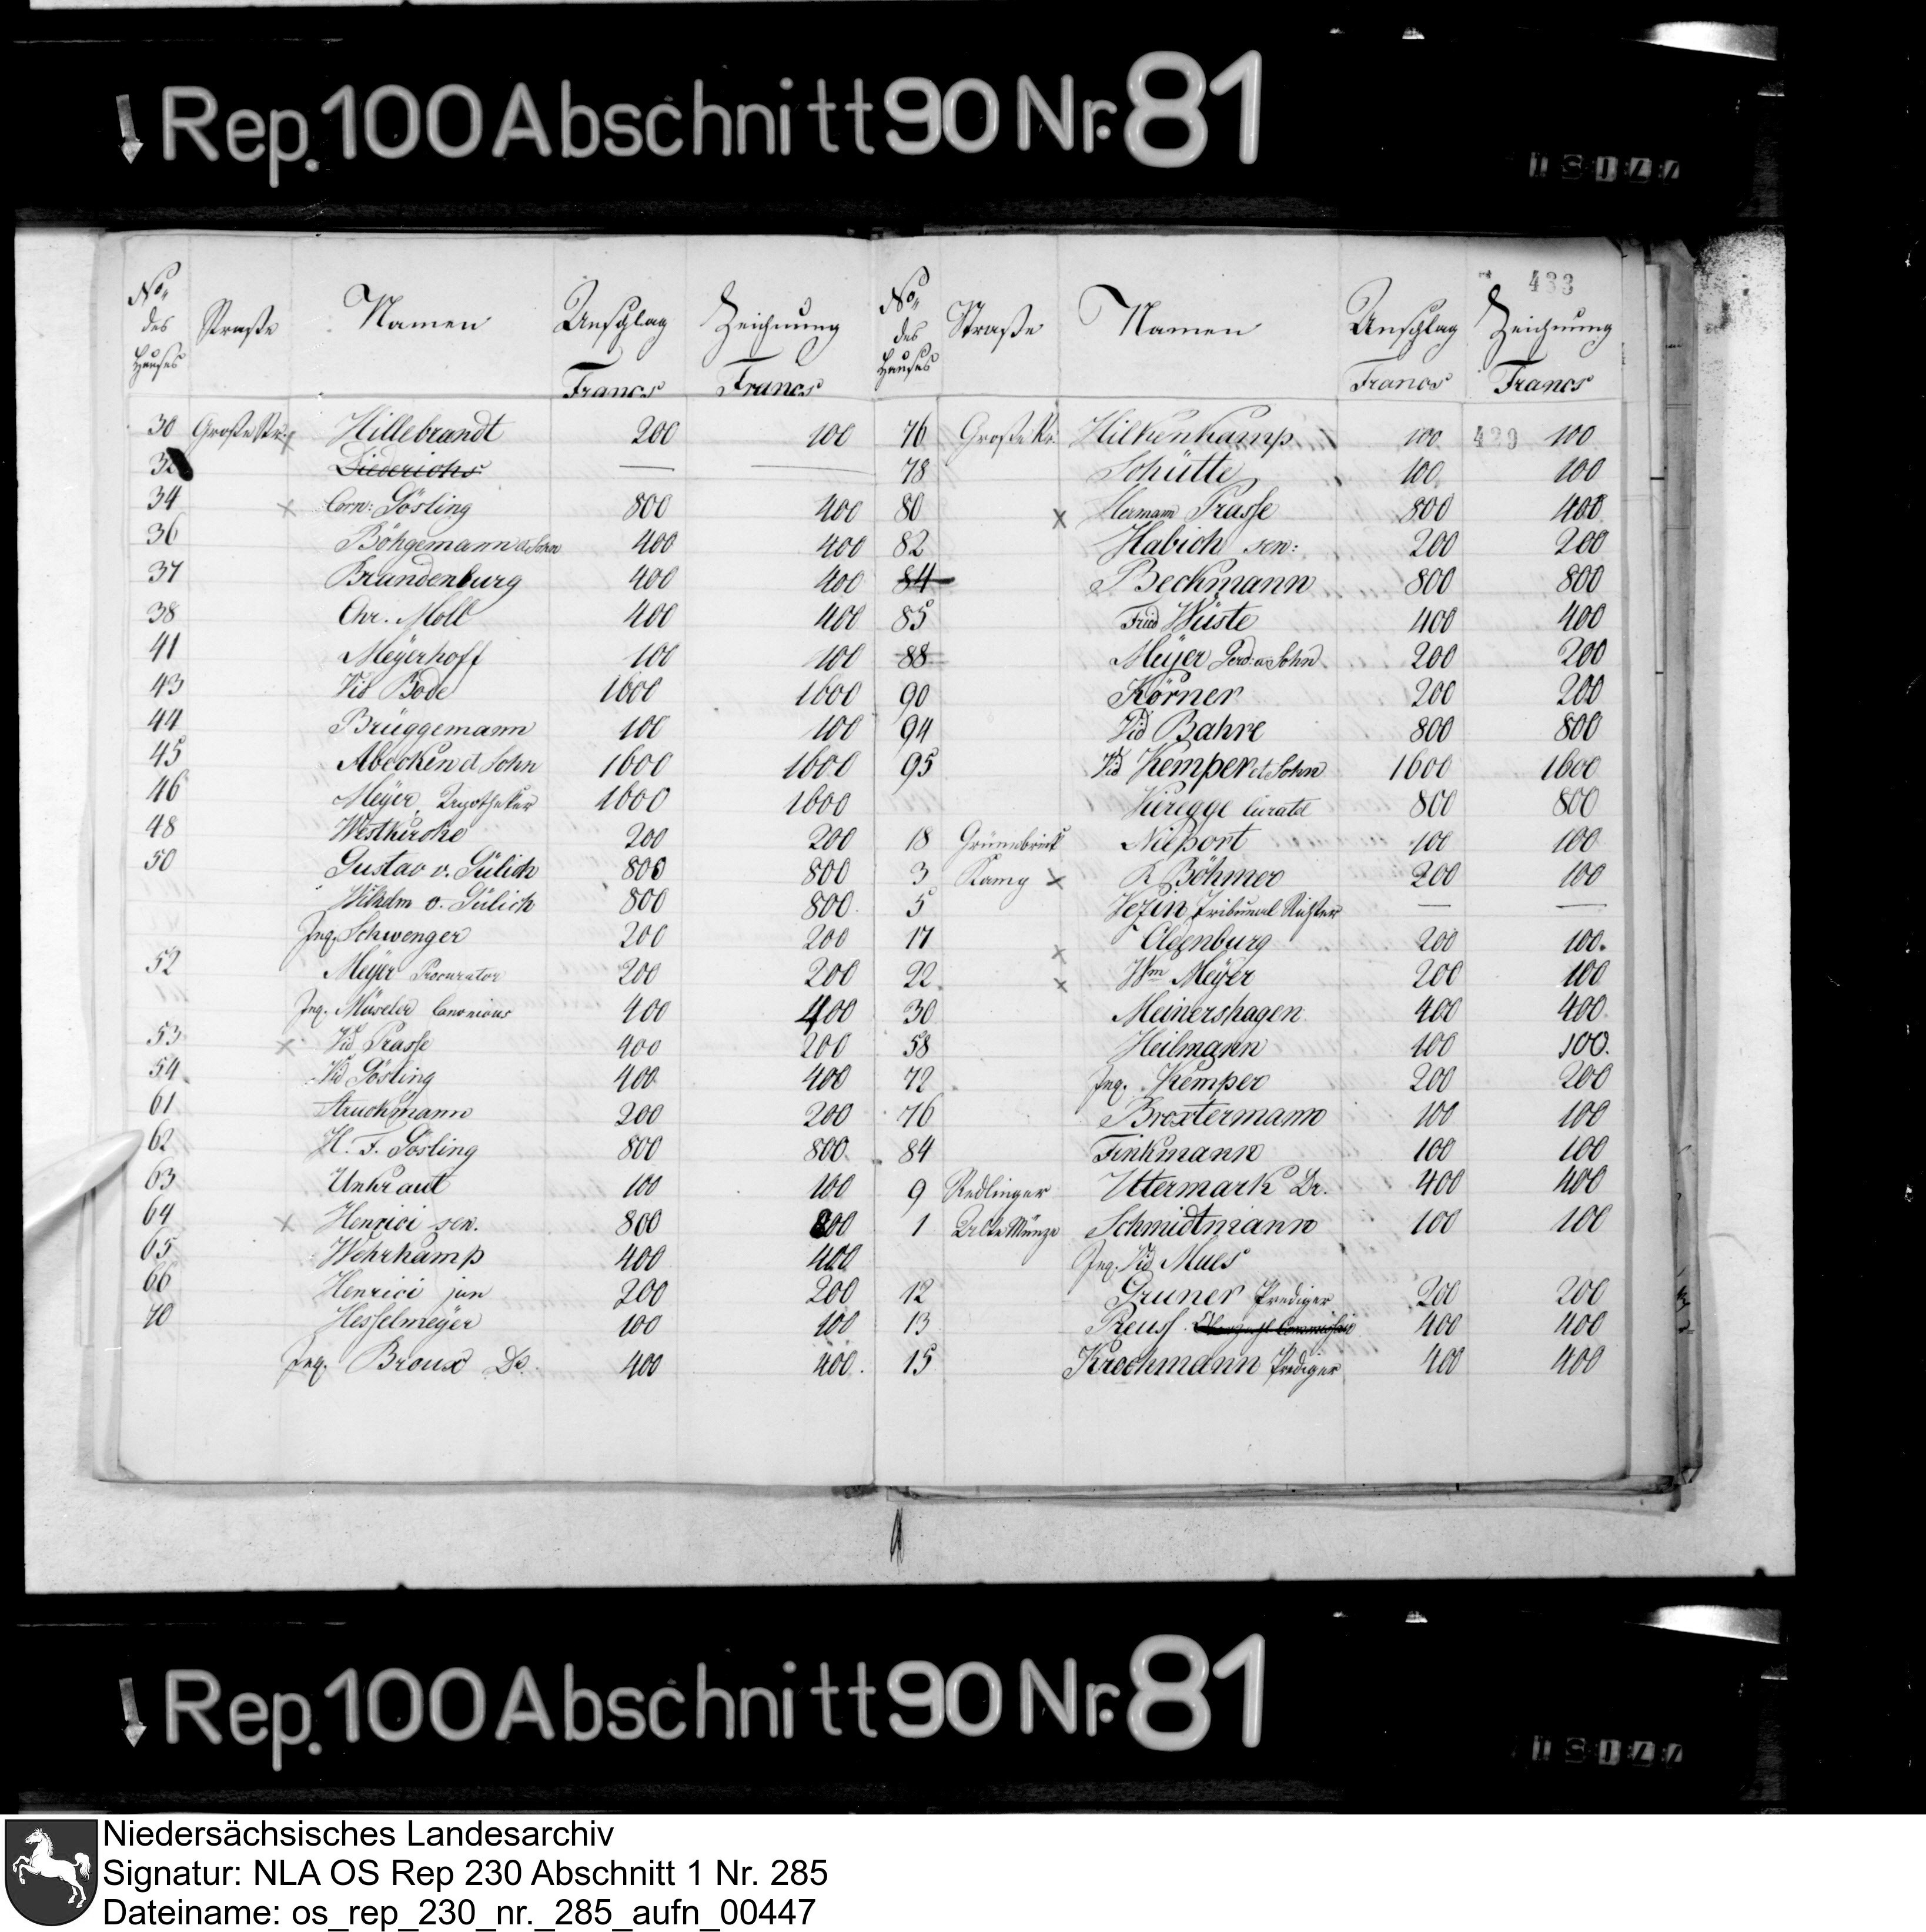 Rep. 100 Abschnitt 90 Nr. 81
433
No. des Hauses Straße Namen Anschlag Francs Zeichnung Francs
30 Große Str. Hillebrandt 200 100
32 Diederichs — —
34 × Corn: Gösling 800 400
36 Böhgemann et Sohn 400 400
37 Brandenburg 400 400
38 Chr. Moll 400 400
41 Meÿerhoff 100 100
43 Vid Bode 1600 1600
44 Brüggemann 100 100
45 Abecken et Sohn 1600 1600
46 Meÿer, Apotheker 1600 1600
48 Westkirche 200 200
50 Gustav v. Gülich 800 800
Wilhelm v. Gülich 800 800
Inq. Schwenger 200 200
52 Meÿer Procurator 200 200
Inq. Möseler Canonicus 400 400
53 × Vid Prasse 400 200
54 Vid Gösling 400 400
61 Struckmann 200 200
62 H. F. Gösling 800 800
63 Unkraut 100 100
64 × Henrici sen. 800
65 Wehrkamp 400 400
66 Henrici jun 200 200
70 Hesselmeÿer 100 100
Inq. Broux Dr. 400 400
No. des Hauses Straße Namen Anschlag Francs Zeichnung Francs
76 Große Str. Hilkenkamp 100 429 100
78 Schütte 100 100
80 × Hermann Prasse 800 400
82 Habich sen: 200 200
84 Beckmann 800 800
85 Fried Wüste 400 400
88 Meÿer Gerd: u Sohn 200 200
90 Körner 200 200
94 Vid Bahre 800 800
95 Vid Kemper et Sohn 1600 1600
Vieregge Curatel 800 800
18 Grünebrink Nieport 100 100
3 Kamp × R Böhmer 200 100
5 Vezin Tribunal Richter — —
17 × Oldenburg 200 100
22 × Wm Meÿer 200 100
30 Meinershagen 400 400
58 Heilmann 100 100
72 Inq. Kemper 200 200
76 Broxtermann 100 100
84 Finkmann 100 100
9 Redlinger Uttermark Dr. 400 400
1 Alte Münze Schmidtmann 100 100
Inq. Vid Mues
12 Gruner Prediger 200 200
13 Preuss 400 400
15 Kreckmann Prediger 400 400
Rep. 100 Abschnitt 90 Nr. 81
Niedersächsisches Landesarchiv
Signatur: NLA OS Rep 230 Abschnitt 1 Nr. 285
Dateiname: os_rep_230_nr._285_aufn_00447